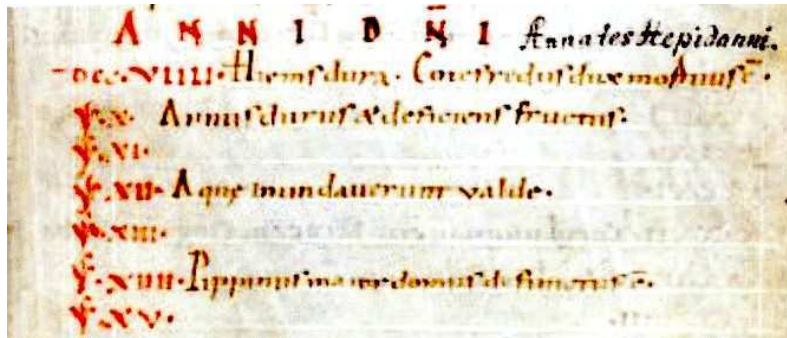 ANNI DN̄I Annales Hepidanni.
DCCVIIII. Hiems dura. Cotefredus dux mortuus ē.
X. Annus durus & deficiens fructus.
XI.
XII. Aque inundauerunt valde.
XIII.
XIIII. Pippinus maior domus defunctus ē.
XV.